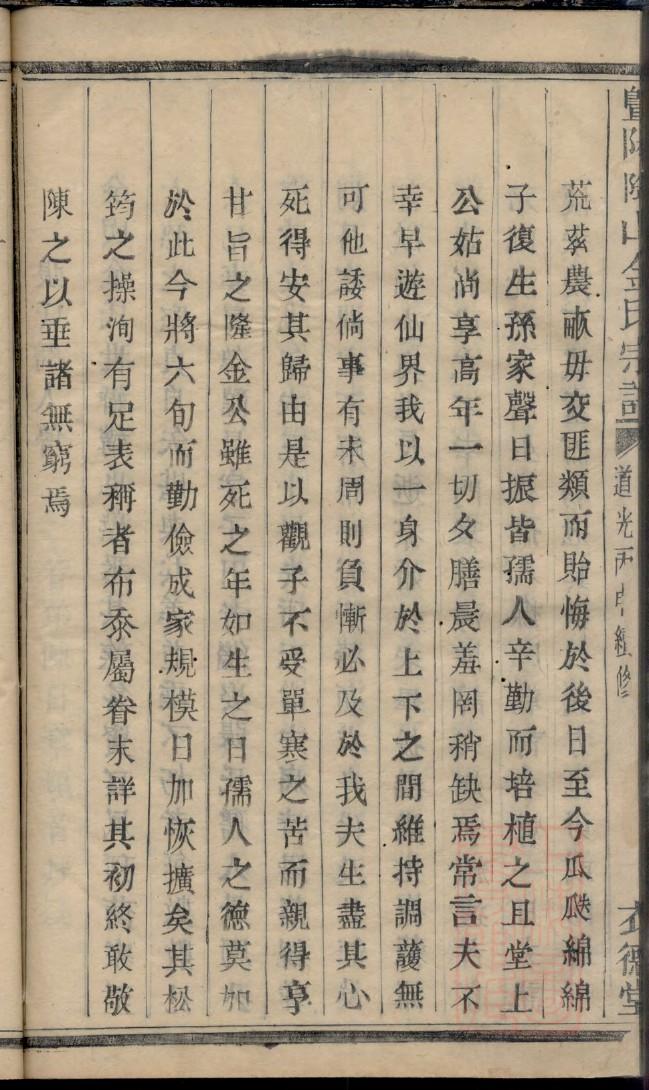 暨陽陰山金氏宗譜
道光丙申經修
衣德堂
荒萃農畝毋交匪類而貽悔於後日至今瓜瓞綿綿
子復生孫家聲日振皆孺人辛勤而培植之且堂上
公姑尚享高年一切夕膳晨羞罔稍缺焉常言夫不
幸早遊仙界我以一身介於上下之間維持調護無
可他諉倘事有未周則負慚必及於我夫生盡其心
死得安其歸由是以觀子不受單寒之苦而親得享
甘旨之隆金公雖死之年如生之日孺人之德莫加
於此今將六旬而勤儉成家規模日加恢擴矣其松
筠之操洵有足表稱者布忝屬眷末詳其初終敢敬
陳之以垂諸無窮焉